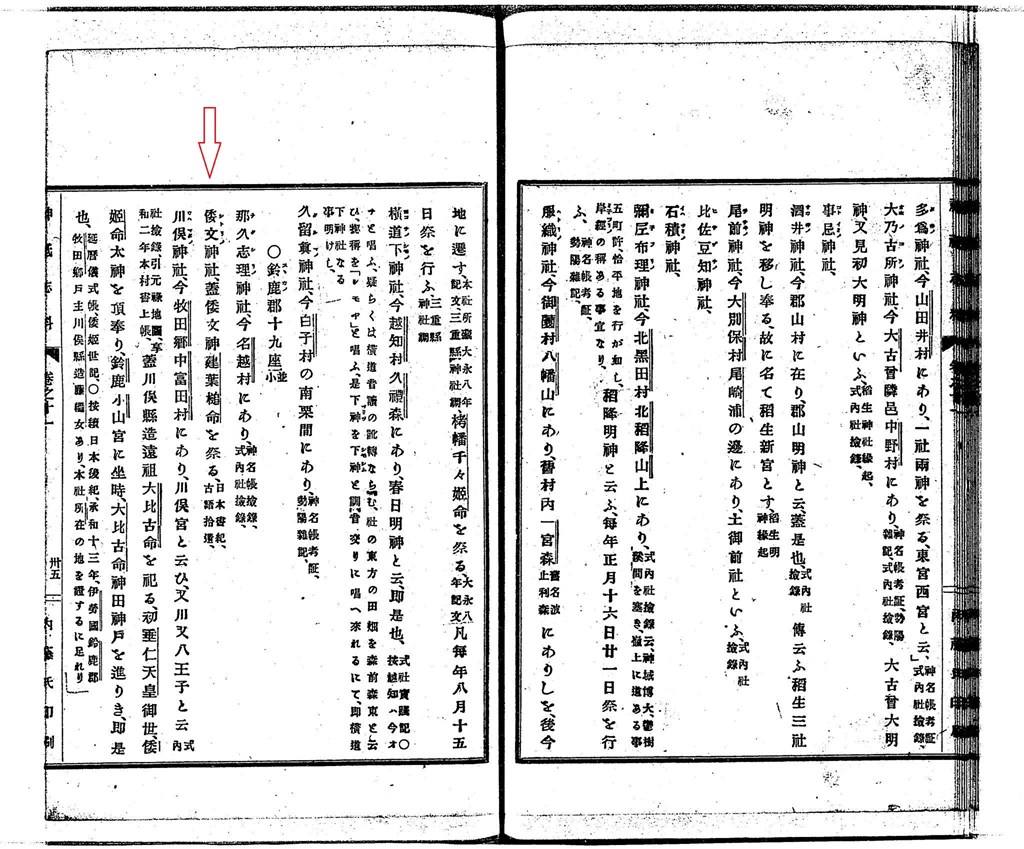 多爲神社、今山田井村にあり、一社兩神を祭る、東宮西宮と云、神名帳考証、式內社撿錄、
大乃古所神社、今大古曾隣邑中野村にあり、神名帳考証、勢陽雜記、式內社撿錄、大古曾大明
神、又見初大明神といふ、稻生神社緣起、式內社撿錄、
事忌神社、
酒井神社、今郡山村に在り、郡山明神と云、蓋是也、式內社撿錄、傳云ふ稻生三社
明神を移し奉る、故に名て稻生新宮とす、稻生明神緣起
尾前神社、今大別保村尾崎浦の邊にあり、土御前社といふ、式內社撿錄
比佐豆知神社、
石積神社、
彌尼布理神社、今北黑田村北稻降山上にあり、式內社撿錄云、神城博大、鬱樹溪間を塞き、嶺上に道ある事
五町許恰平地を行が如し、岸經の稱ある事宜なり、稻降明神と云ふ、每年正月十六日廿一日祭を行
ふ、神名帳考証、勢陽雜記、
服織神社、今御薗村八幡山にあり、舊村內一宮森舊名波止利森にありしを後今
地に遷す、本社所藏大永八年記文、三重縣神社調、栲幡千々姬命を祭る、大永八年記文凡每年八月十五
日祭を行ふ、三重縣神社調
橫道下神社、今越知村久禮森にあり、春日明神と云、卽是也、式社實蹟記〇按越知ハ今オ
チと唱ふ、疑らくは橫道昔讀の訛轉ならむ、社の東方の田畑を森前森東と云
ひ、惣稱を「レモヤ」と唱ふ、是下神を下神と訓、音交りに唱へ來れるにて、卽橫道
下神社なる事明けし、
久留眞神社、今白子村の南栗間にあり、神名帳考証、勢陽雜記、
〇鈴鹿郡十九座並小
那久志理神社、今名越村にあり、神名帳撿錄、式內社撿錄、
倭文神社、蓋倭文神建葉槌命を祭る、日本書紀、古語拾遺、
川俣神社、今牧田鄕中富田村にあり、川俣宮と云ひ、又川又八王子と云、式內
社撿錄引元祿地圖、享和二年本村書上帳、蓋川俣縣造遠祖大比古命を祀る、初垂仁天皇御世、倭
姬命太神を頂奉り、鈴鹿小山宮に坐時、大比古命神田神戶を進りき、卽是
也、延曆儀式帳、倭姬世記、〇按續日本後紀、承和十三年、伊勢國鈴鹿郡牧田鄕戶主川俣縣造藤繼女あり、本社所在の地を證するに足れり
神祇志料
卷之十一
卅五
內藤氏印刷